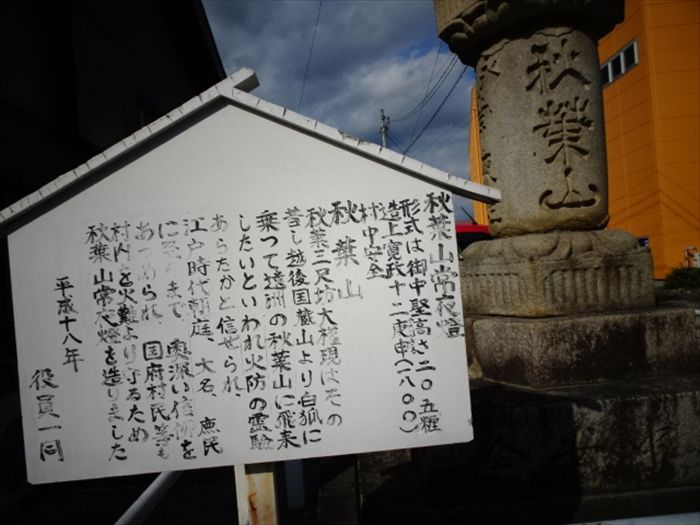 秋葉山常夜燈
形式は御中竪高さ二〇五糎
造上寛政十二庚申(一八〇〇)
村中安全
秋葉山
秋葉三尺坊大権現はその
昔し越後国蔵山より白狐に
乗つて遠洲の秋葉山に飛来
したいといわれ火防の霊験
あらたかと信ぜられ
江戸時代朝庭、大名、庶民
に至るまで、奥深い信仰を
あつめられ、国府村民等も
村内を火難より守るため
秋葉山常夜燈を造りました
平成十八年
役員一同
秋葉山